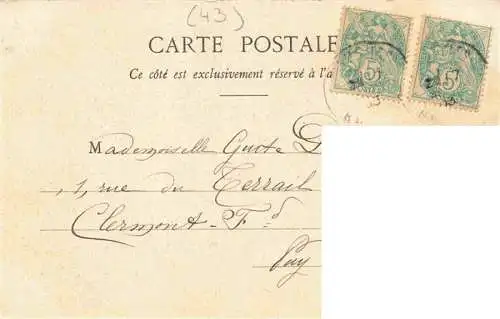 (43)
CARTE POSTALE
Ce côté est exclusivement réservé à l'a
5 5
Mademoiselle Guite D
1, rue du Terrail
Clermont-Fd
Puy